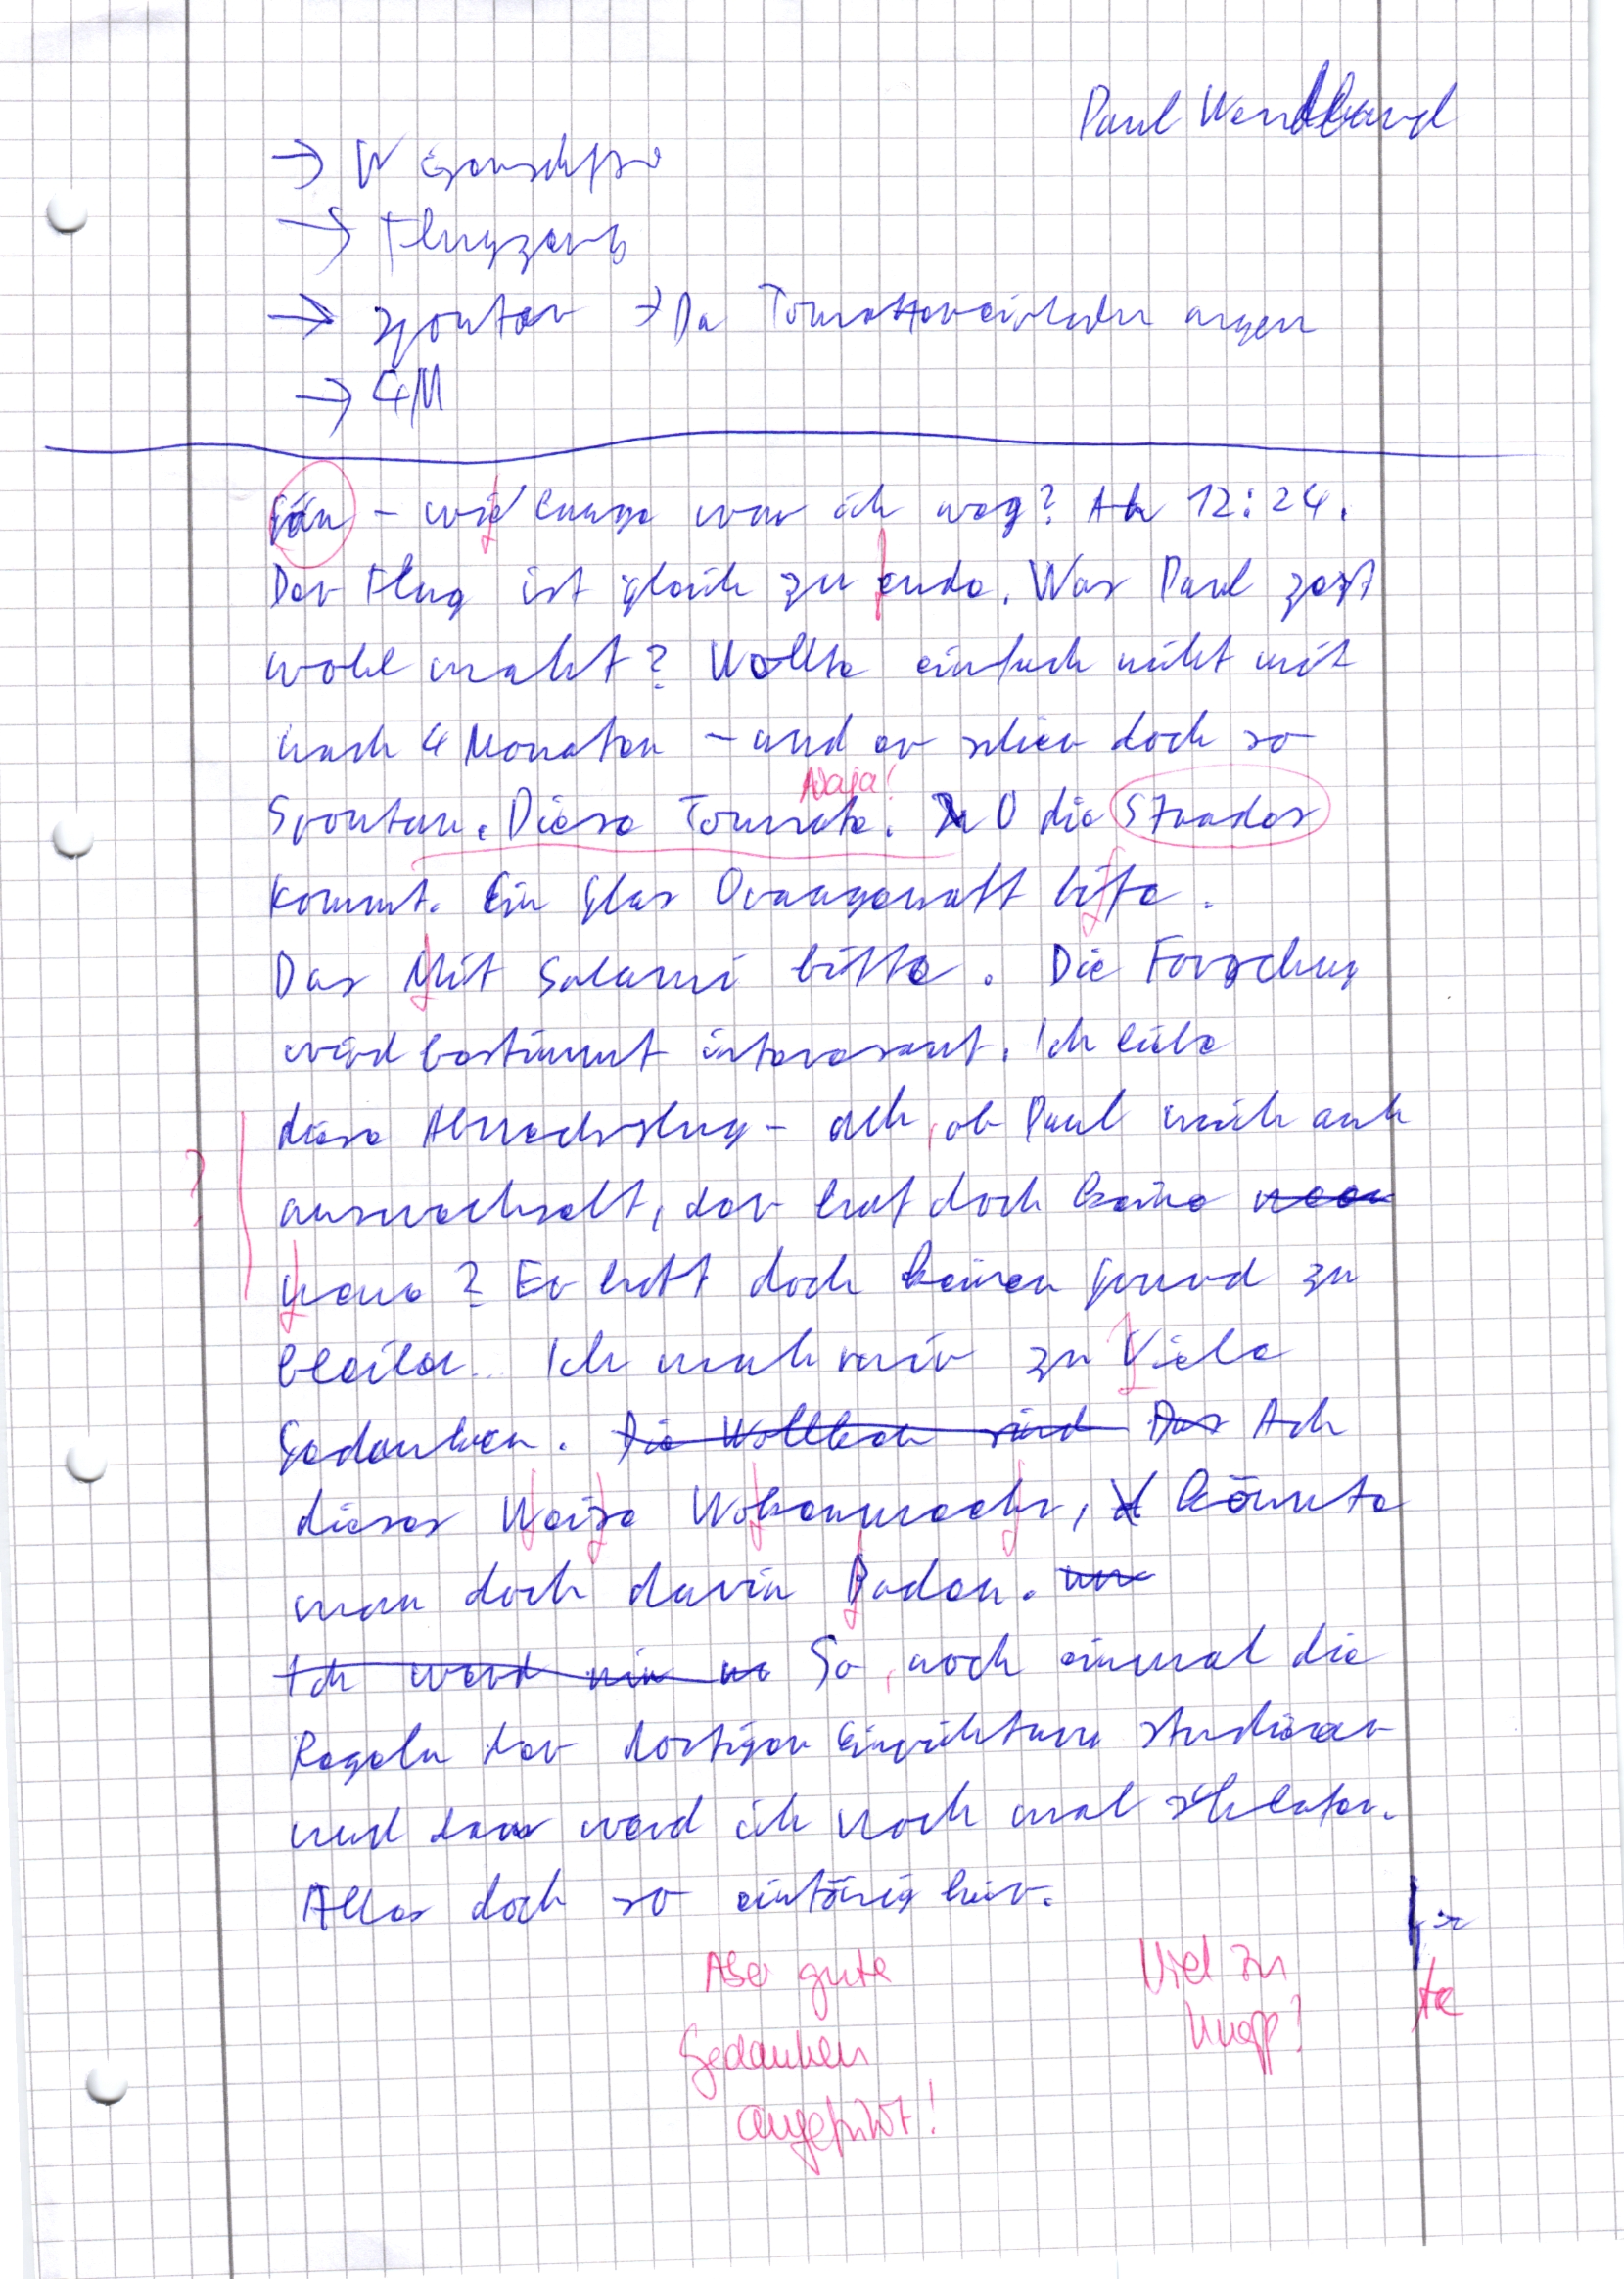 Paul Wendland
→
→ Flugzeug
→ spontan → Da Tomaten augen
→ 4M
Gän – wie lange war ich weg? Ah 12:24.
Der Flug ist gleich zu ende. Was Paul jezt
wohl macht? Wollte einfach nicht mit
nach 4 Monaten – und er schien doch so
Naja!
Spontan. Diese Tomate. O die Stuades
kommt. Ein Glas Orangensaft bitte.
Das Mit Salami bitte. Die Forschug
wird bestimmt interesant. Ich liebe
diese Abwechslug – ach, ob Paul mich auch
?
auswechselt, der hat doch keine neue
Neue? Er hatt doch keinen grund zu
bleiben.. Ich mach mir zu Viele
Gedanken. Die Wolken sind Das Ach
dieses Weise Wokenmeehr, könnte
man doch darin Baden.
Ich werd So, noch einmal die
Regeln der dortigen Einrichtung studieren
und dann werd ich noch mal schlafen.
Alles doch so eintönig hier.
Aber gute
Gedanken
angeführt!
Viel zu
knapp!